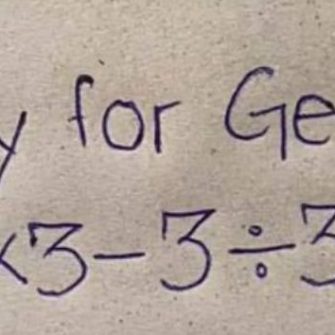 y for Ge
×3-3÷3